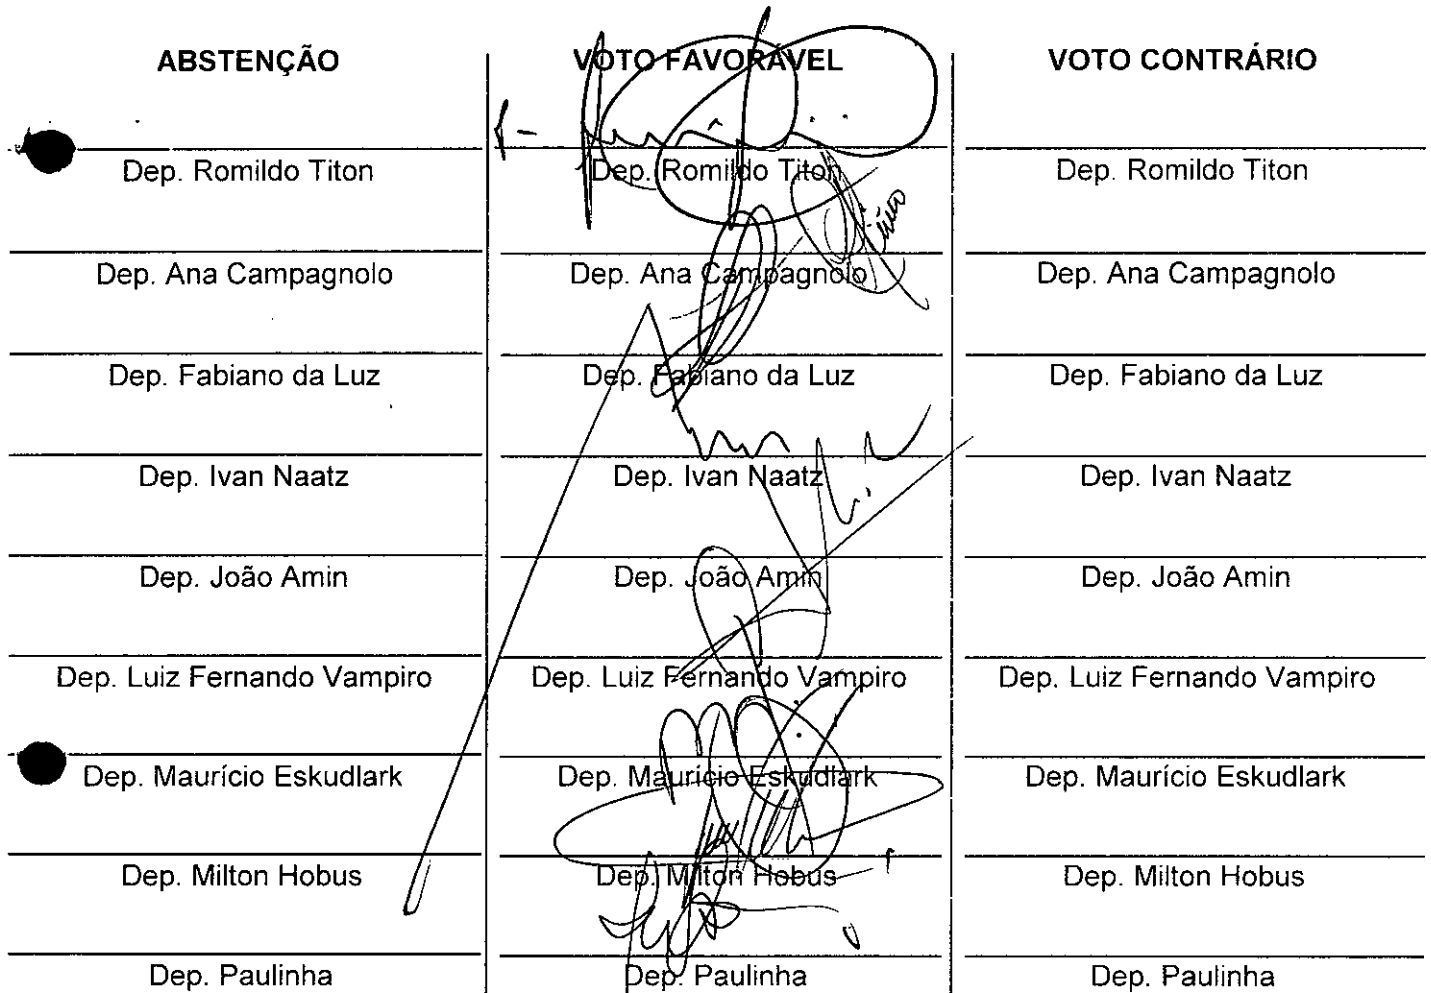 ABSTENÇÃO VOTO FAVORÁVEL VOTO CONTRÁRIO
Dep. Romildo Titon Dep. Romildo Titon Dep. Romildo Titon
Dep. Ana Campagnolo Dep. Ana Campagnolo Dep. Ana Campagnolo
Dep. Fabiano da Luz Dep. Fabiano da Luz Dep. Fabiano da Luz
Dep. Ivan Naatz Dep. Ivan Naatz Dep. Ivan Naatz
Dep. João Amin Dep. João Amin Dep. João Amin
Dep. Luiz Fernando Vampiro Dep. Luiz Fernando Vampiro Dep. Luiz Fernando Vampiro
Dep. Maurício Eskudlark Dep. Maurício Eskudlark Dep. Maurício Eskudlark
Dep. Milton Hobus Dep. Milton Hobus Dep. Milton Hobus
Dep. Paulinha Dep. Paulinha Dep. Paulinha